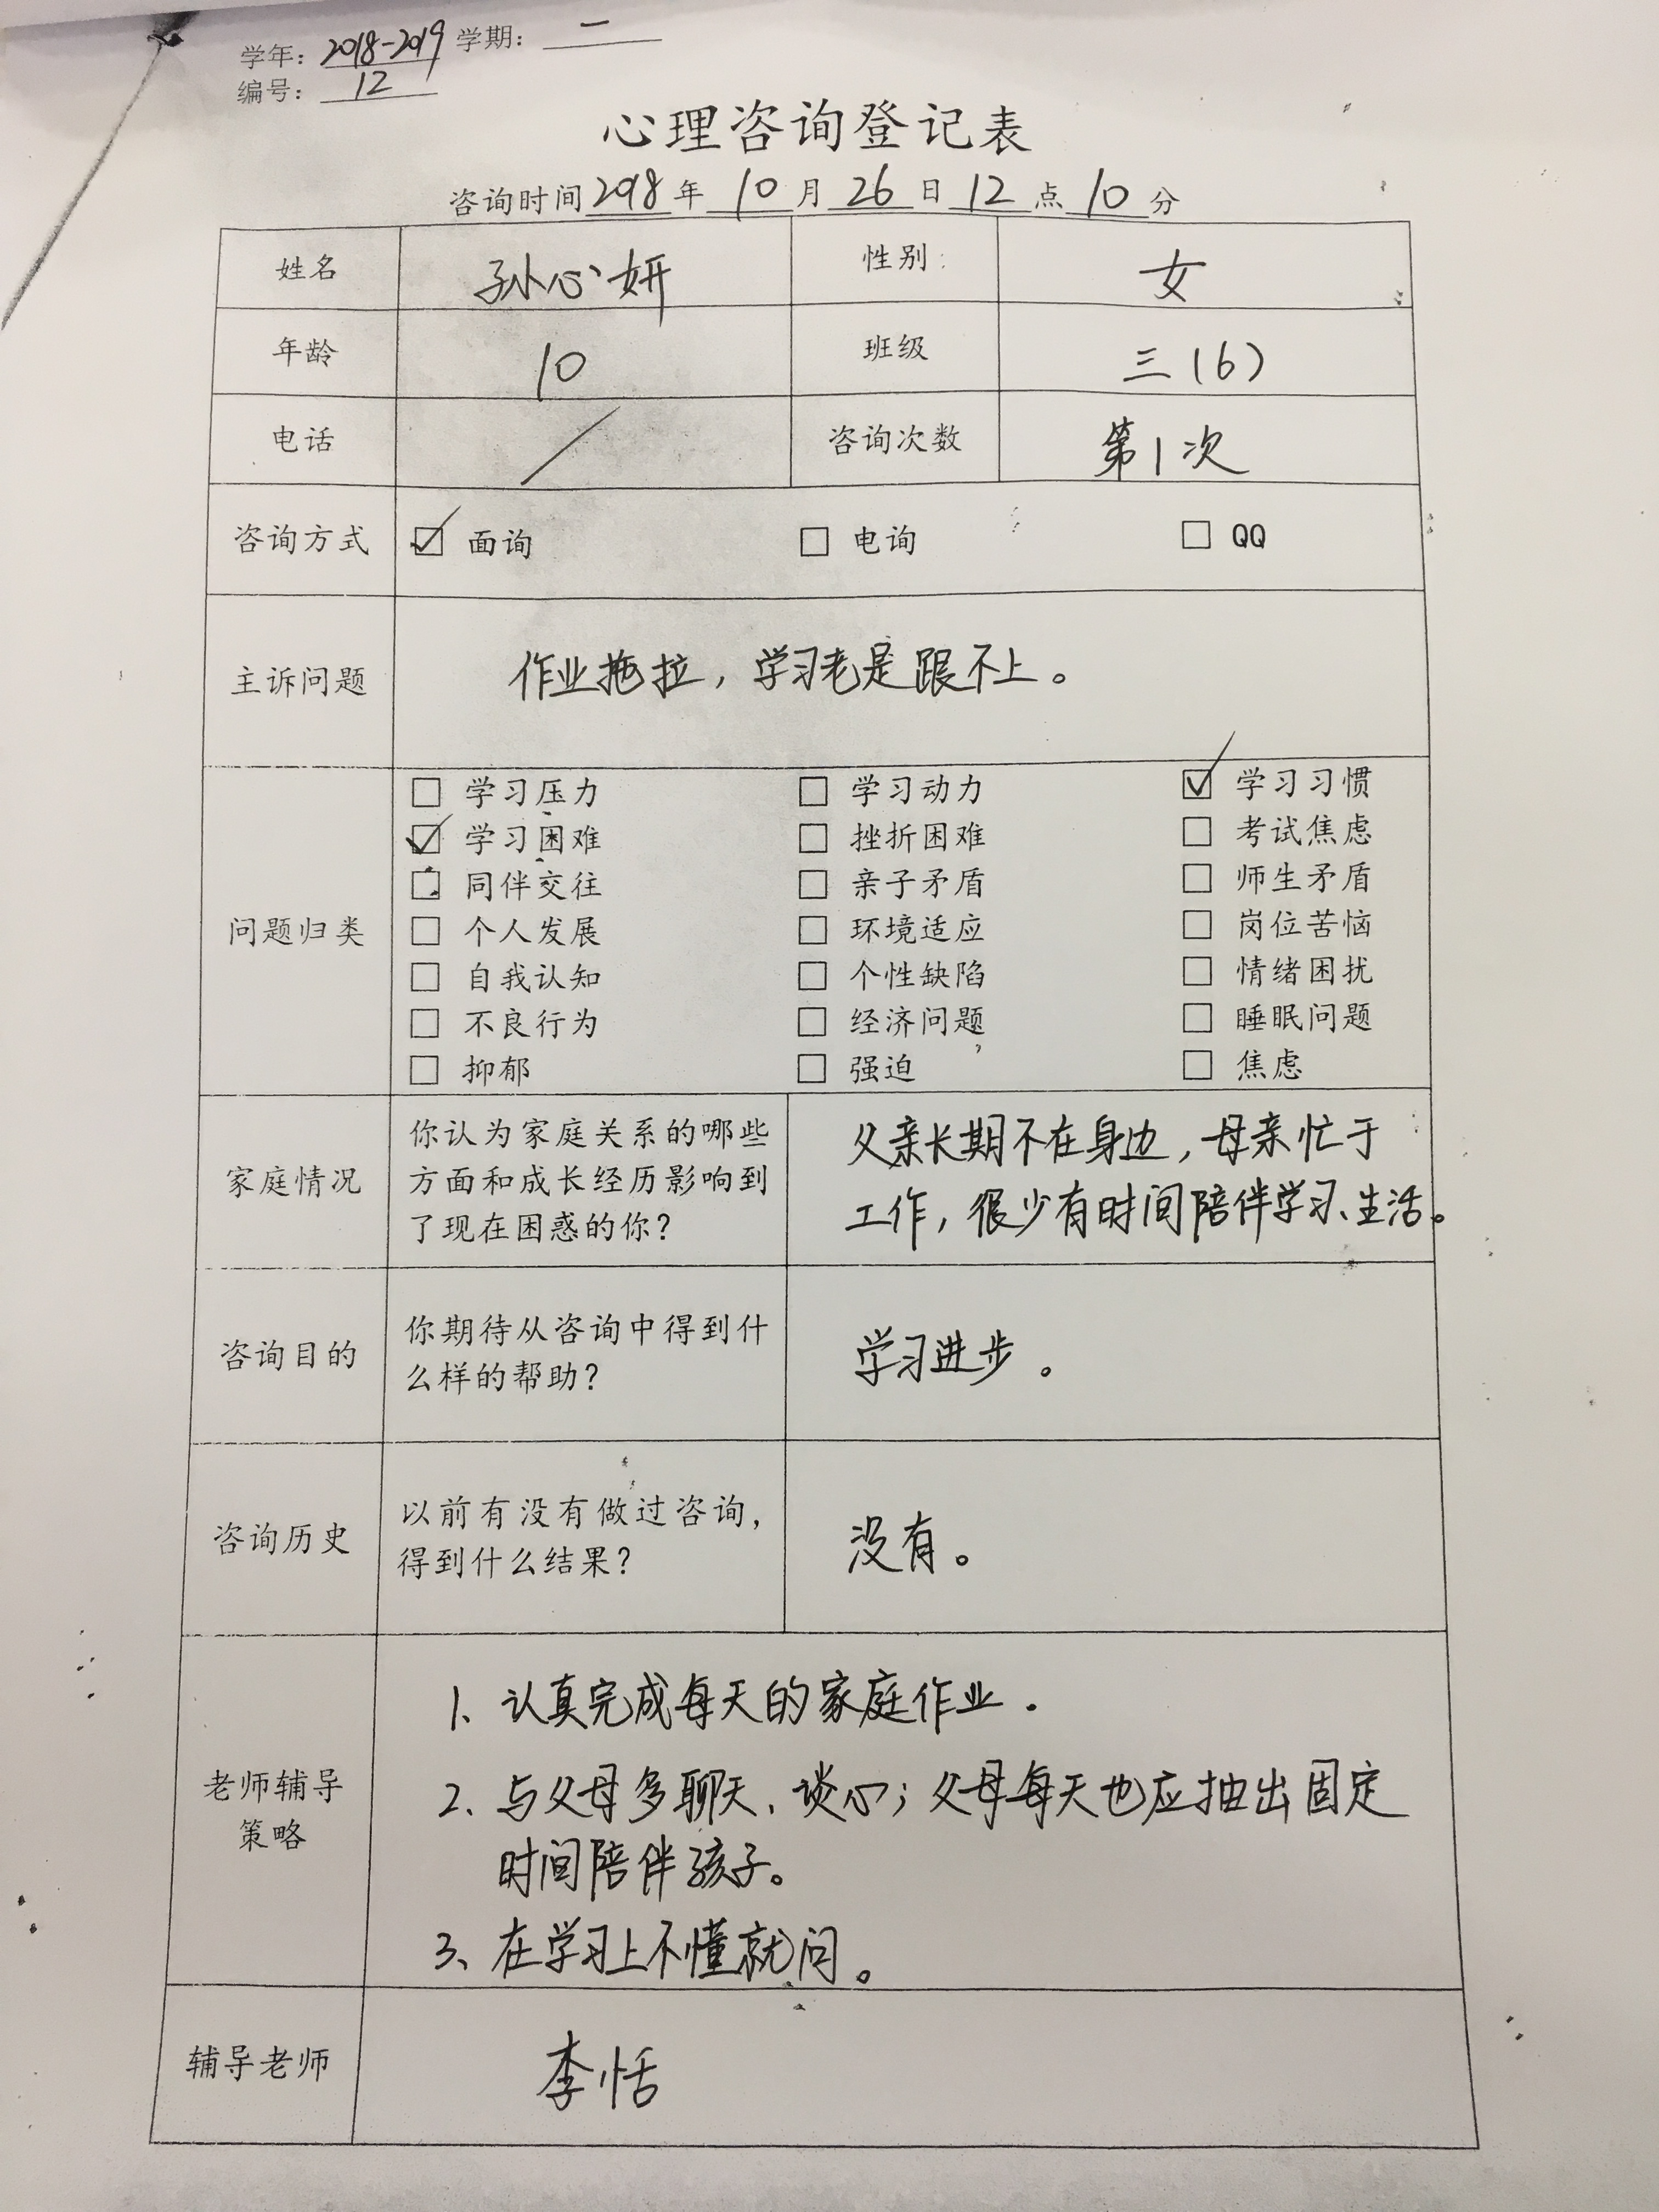 学年：2018-2019 学期：一
编号：12
心理咨询登记表
咨询时间2018年10月26日12点10分
姓名 孙心妍 性别： 女
年龄 10 班级 三（6）
电话 / 咨询次数 第1次
咨询方式 ☑ 面询 □ 电询 □ QQ
主诉问题 作业拖拉，学习老是跟不上。
□ 学习压力 □ 学习动力 ☑ 学习习惯
☑ 学习困难 □ 挫折困难 □ 考试焦虑
□ 同伴交往 □ 亲子矛盾 □ 师生矛盾
问题归类 □ 个人发展 □ 环境适应 □ 岗位苦恼
□ 自我认知 □ 个性缺陷 □ 情绪困扰
□ 不良行为 □ 经济问题 □ 睡眠问题
□ 抑郁 □ 强迫 □ 焦虑
家庭情况
你认为家庭关系的哪些
方面和成长经历影响到
了现在困惑的你？
父亲长期不在身边，母亲忙于
工作，很少有时间陪伴学习、生活。
咨询目的
你期待从咨询中得到什
么样的帮助？
学习进步。
咨询历史
以前有没有做过咨询，
得到什么结果？
没有。
老师辅导
策略
1、认真完成每天的家庭作业.
2、与父母多聊天、谈心；父母每天也应抽出固定
时间陪伴孩子。
3、在学习上不懂就问。
辅导老师 李恬